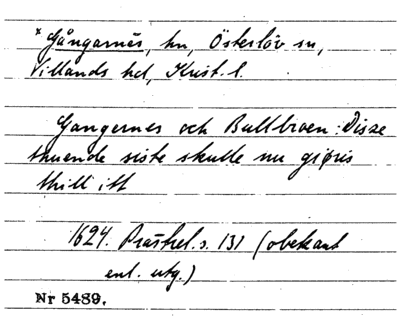 * Gångarnës, hn, Österlöv sn,
Villands hd, Krist. l.
Gangernes och Bullbroen: Disze
thuende siste skulle nu giøris
thill itt
1624. Präsrel. s. 131 (obekant
enl. utg.)
Nr 5489.